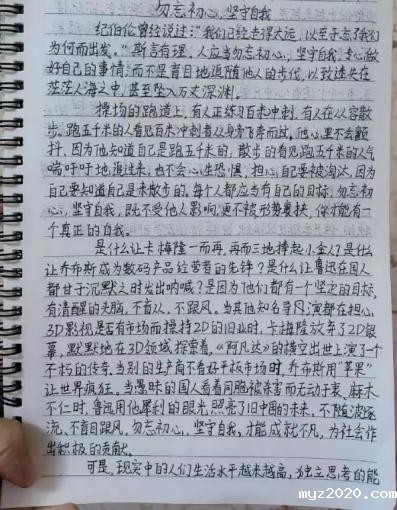 勿忘初心,坚守自我
纪伯伦曾经说过:“我们已经走得太远,以至于忘了我们
为何而出发。”斯言有理。人应当勿忘初心,坚守自我,专心做
好自己的事情,而不是盲目地追随他人的步伐,以致迷失在
茫茫人海之中,甚至坠入万丈深渊。
操场的跑道上,有人正练习百米冲刺,有人在从容散
步。跑五千米的人看见百米冲刺者从身旁飞奔而过,他心里不会颤
抖,因为他知道自己是跑五千米的;散步的看见跑五千米的人气
喘吁吁地追过来,也不会心生恐惧,担心自己要被淘汰,因为
自己要知道自己是来散步的。每个人都应当有自己的目标,勿忘初
心,坚守自我,既不受他人影响,更不被形势裹挟,你才能有一
个真正的自我。
是什么让卡梅隆一而再,再而三地捧起小金人?是什么
让乔布斯成为数码产品经营者的先锋?是什么让鲁迅在国人
都甘于沉默之时发出呐喊?是因为他们都有一个坚定的目标,
有清醒的头脑,不盲从,不跟风。当其他知名导演都在担心
3D影视是否有市场而操持2D的旧业时,卡梅隆放弃了2D银
幕,默默地在3D领域探索着,《阿凡达》的横空出世上演了一个
不朽的传奇。当别的生产商不看好平板市场时,乔布斯用“苹果”
让世界疯狂。当愚昧的国人看着同胞被杀害而无动于衷、麻木
不仁时,鲁迅用他犀利的眼光照亮了旧中国的未来。不随波逐
流,不盲目跟风,勿忘初心,坚守自我,才能成就不凡,为社会作
出积极的贡献。
可是,现实中的人们生活水平越来越高,独立思考的能
myz2020.com